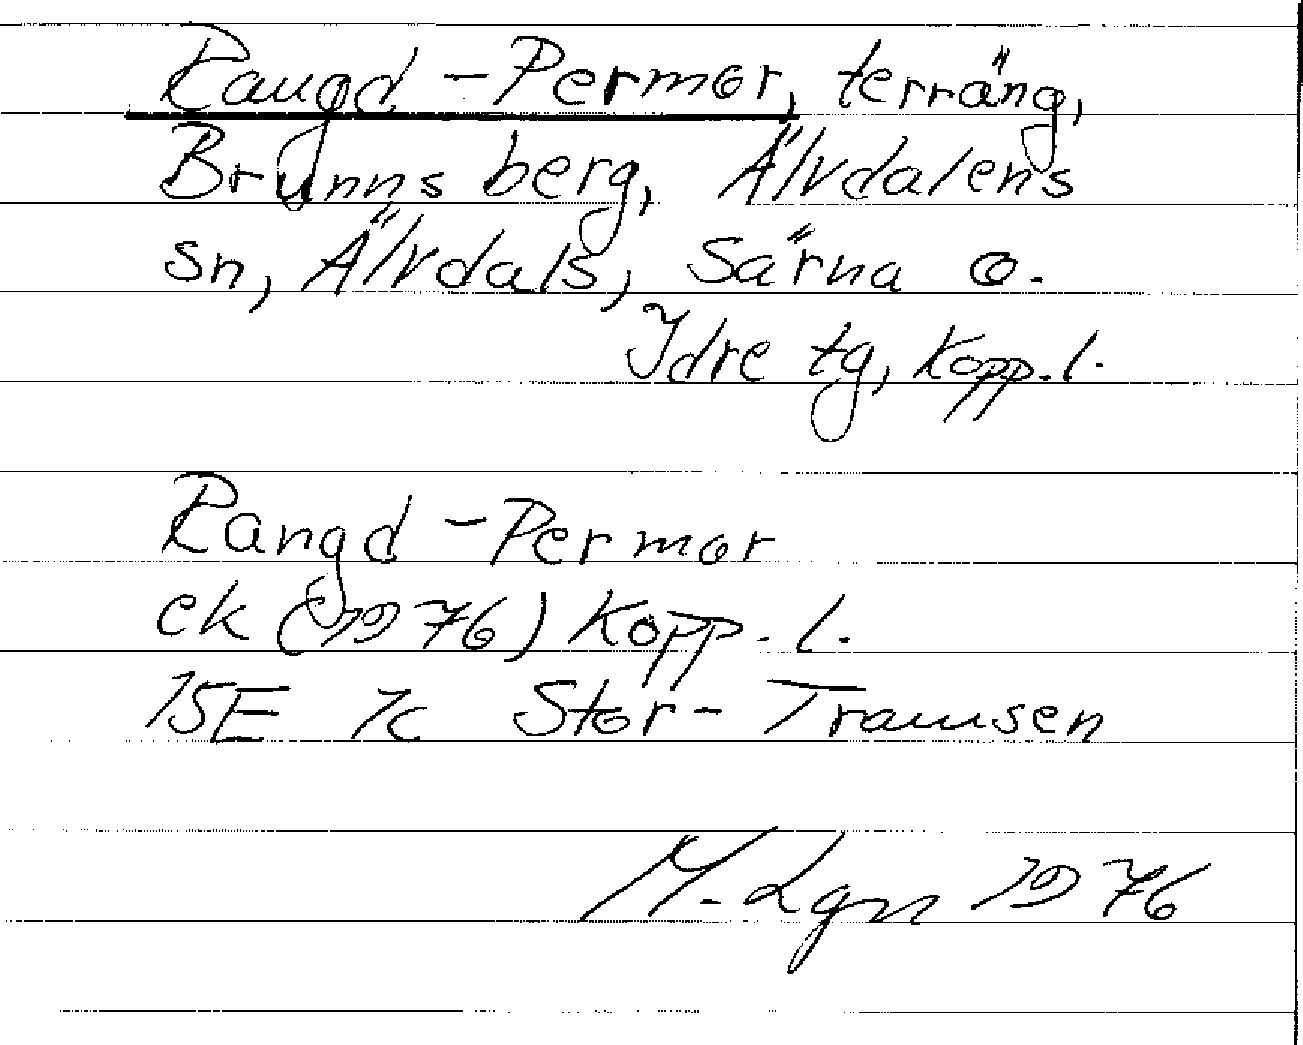 Rangd-Permor, terräng,
Brunnsberg, Älvdalens
sn, Älvdals, Särna o.
Idre tg, Kopp. l.
Rangd-Permor
ek (1976) Kopp. l.
15E 7c Stor-Tramsen
M. Lgn 1976